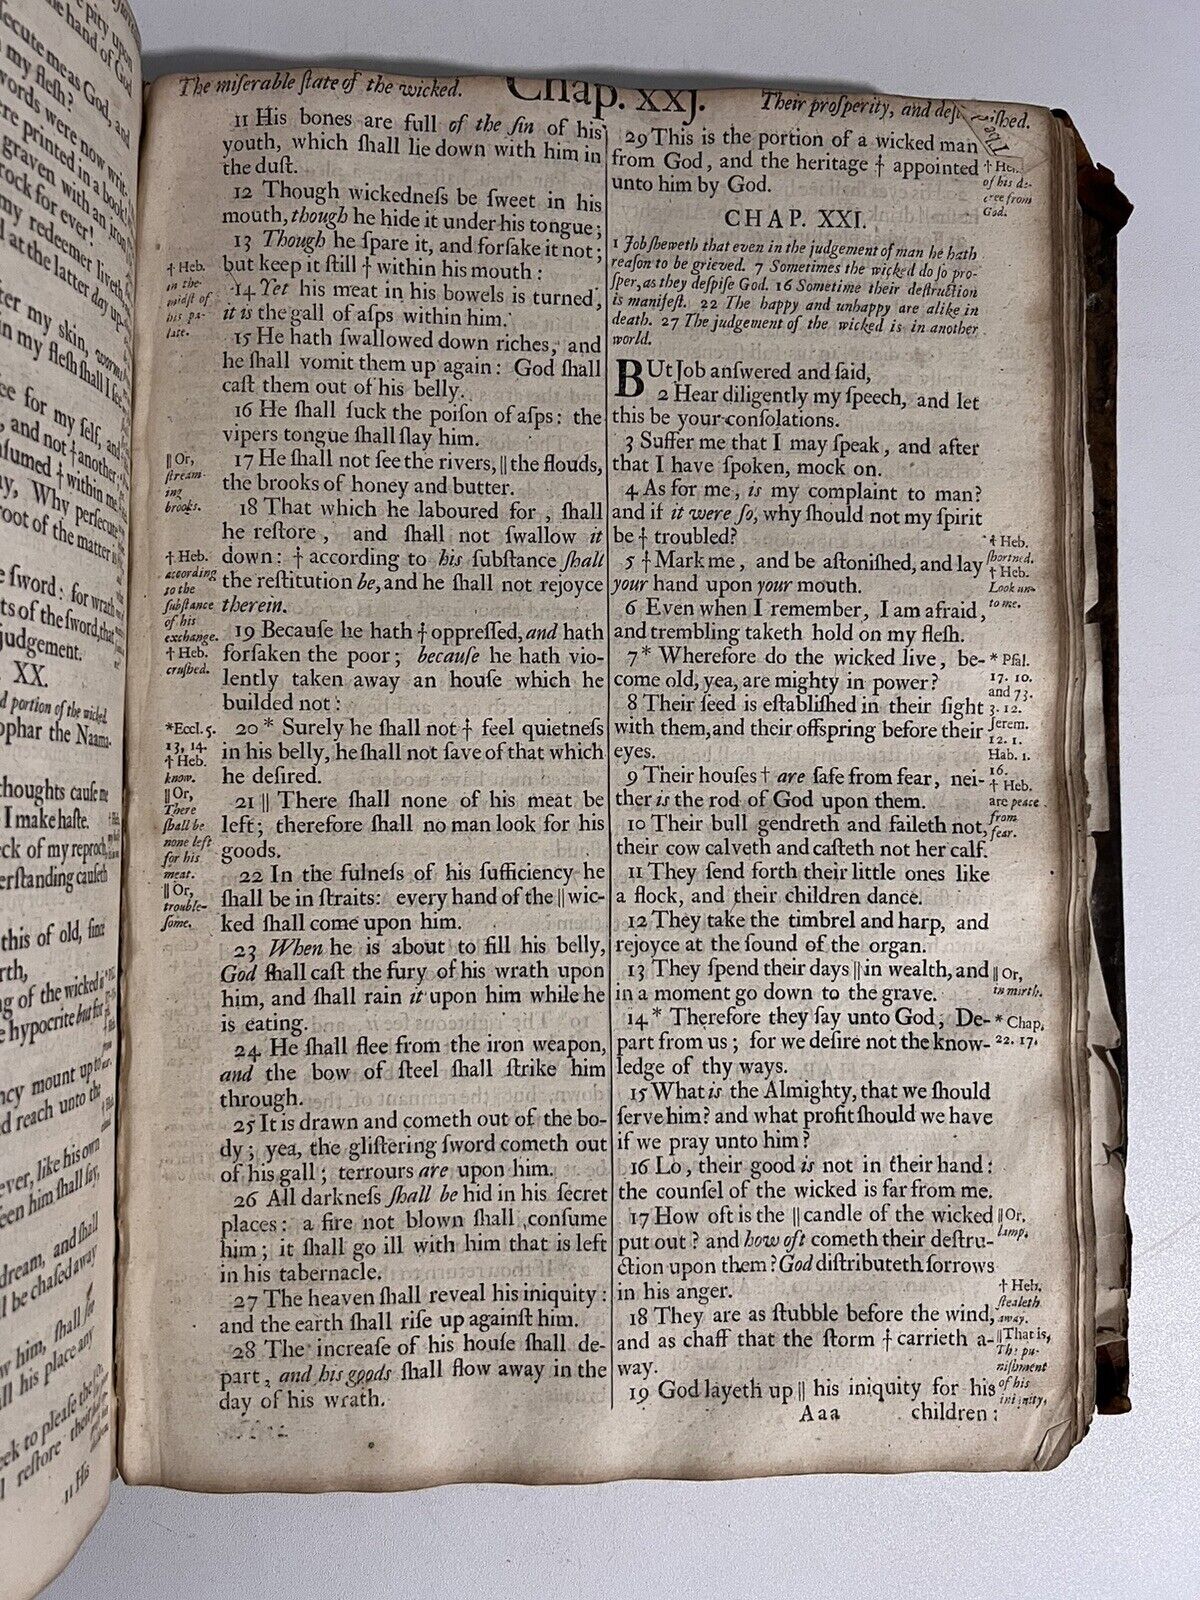 pity upon
the hand of God
ecute me as God, and
my fleſh?
words were now writ-
re printed in a book!
graven with an iron
rock for ever!
my redeemer liveth,
at the latter day up-
er my skin, worms
in my fleſh ſhall I ſee
ee for my ſelf, and
, and not † another;
nſumed † within me.
ay, Why perſecute
root of the matter is
e ſword: for wrath
ts of the ſword, that
judgement.
XX.
d portion of the wicked.
ophar the Naama-
thoughts cauſe me
I make haſte.
eck of my reproch,
erſtanding cauſeth
this of old, ſince
rth,
ng of the wicked is
e hypocrite but for
ncy mount up to
d reach unto the
ever, like his own
een him ſhall ſay,
dream, and ſhall
l be chaſed away
w him, ſhall ſee
ll his place any
eek to pleaſe the
l reſtore their
11 His
The miſerable ſtate of the wicked.
Chap. xxj.
Their proſperity, and
11 His bones are full of the ſin of his
youth, which ſhall lie down with him in
the duſt.
12 Though wickedneſs be ſweet in his
mouth, though he hide it under his tongue;
13 Though he ſpare it, and forſake it not;
but keep it ſtill † within his mouth:
† Heb.
in the
midſt of
his pa-
late.
14 Yet his meat in his bowels is turned,
it is the gall of aſps within him.
15 He hath ſwallowed down riches, and
he ſhall vomit them up again: God ſhall
caſt them out of his belly.
16 He ſhall ſuck the poiſon of aſps: the
vipers tongue ſhall ſlay him.
17 He ſhall not ſee the rivers, || the flouds,
the brooks of honey and butter.
|| Or,
ſtream-
ing
brooks.
18 That which he laboured for, ſhall
he reſtore, and ſhall not ſwallow it
down: † according to his ſubſtance ſhall
the reſtitution be, and he ſhall not rejoyce
therein.
† Heb.
according
to the
ſubſtance
of his
exchange.
19 Becauſe he hath † oppreſſed, and hath
forſaken the poor; becauſe he hath vio-
lently taken away an houſe which he
builded not:
† Heb.
cruſhed.
20 * Surely he ſhall not † feel quietneſs
in his belly, he ſhall not ſave of that which
he deſired.
* Eccl. 5.
13, 14.
† Heb.
know.
21 || There ſhall none of his meat be
left; therefore ſhall no man look for his
goods.
|| Or,
There
ſhall be
none left
for his
meat.
22 In the fulneſs of his ſufficiency he
ſhall be in ſtraits: every hand of the || wic-
ked ſhall come upon him.
|| Or,
trouble-
ſome.
23 When he is about to fill his belly,
God ſhall caſt the fury of his wrath upon
him, and ſhall rain it upon him while he
is eating.
24 He ſhall flee from the iron weapon,
and the bow of ſteel ſhall ſtrike him
through.
25 It is drawn and cometh out of the bo-
dy; yea, the gliſtering ſword cometh out
of his gall; terrours are upon him.
26 All darkneſs ſhall be hid in his ſecret
places: a fire not blown ſhall conſume
him; it ſhall go ill with him that is left
in his tabernacle.
27 The heaven ſhall reveal his iniquity:
and the earth ſhall riſe up againſt him.
28 The increaſe of his houſe ſhall de-
part, and his goods ſhall flow away in the
day of his wrath.
29 This is the portion of a wicked man
from God, and the heritage † appointed
unto him by God.
of his de-
cree from
God.
CHAP. XXI.
1 Job ſheweth that even in the judgement of man he hath
reaſon to be grieved. 7 Sometimes the wicked do ſo pro-
ſper, as they deſpiſe God. 16 Sometime their deſtruction
is manifeſt. 22 The happy and unhappy are alike in
death. 27 The judgement of the wicked is in another
world.
BUt Job anſwered and ſaid,
2 Hear diligently my ſpeech, and let
this be your conſolations.
3 Suffer me that I may ſpeak, and after
that I have ſpoken, mock on.
4 As for me, is my complaint to man?
and if it were ſo, why ſhould not my ſpirit
be † troubled?
† Heb.
ſhortned.
5 † Mark me, and be aſtoniſhed, and lay
your hand upon your mouth.
† Heb.
Look un-
to me.
6 Even when I remember, I am afraid,
and trembling taketh hold on my fleſh.
7 * Wherefore do the wicked live, be-
come old, yea, are mighty in power?
* Pſal.
17. 10.
and 73.
3. 12.
Jerem.
12. 1.
Hab. 1.
16.
8 Their ſeed is eſtabliſhed in their ſight
with them, and their offspring before their
eyes.
9 Their houſes † are ſafe from fear, nei-
ther is the rod of God upon them.
† Heb.
are peace
from
fear.
10 Their bull gendreth and faileth not,
their cow calveth and caſteth not her calf.
11 They ſend forth their little ones like
a flock, and their children dance.
12 They take the timbrel and harp, and
rejoyce at the ſound of the organ.
13 They ſpend their days || in wealth, and
in a moment go down to the grave.
|| Or,
in mirth.
14 * Therefore they ſay unto God, De-
part from us; for we deſire not the know-
ledge of thy ways.
* Chap.
22. 17.
15 What is the Almighty, that we ſhould
ſerve him? and what profit ſhould we have
if we pray unto him?
16 Lo, their good is not in their hand:
the counſel of the wicked is far from me.
17 How oft is the || candle of the wicked
put out? and how oft cometh their deſtru-
ction upon them? God diſtributeth ſorrows
in his anger.
|| Or,
lamp.
18 They are as ſtubble before the wind,
and as chaff that the ſtorm † carrieth a-
way.
† Heb.
ſtealeth
away.
19 God layeth up || his iniquity for his
|| That is,
The pu-
niſhment
of his
iniquity.
Aaa
children: